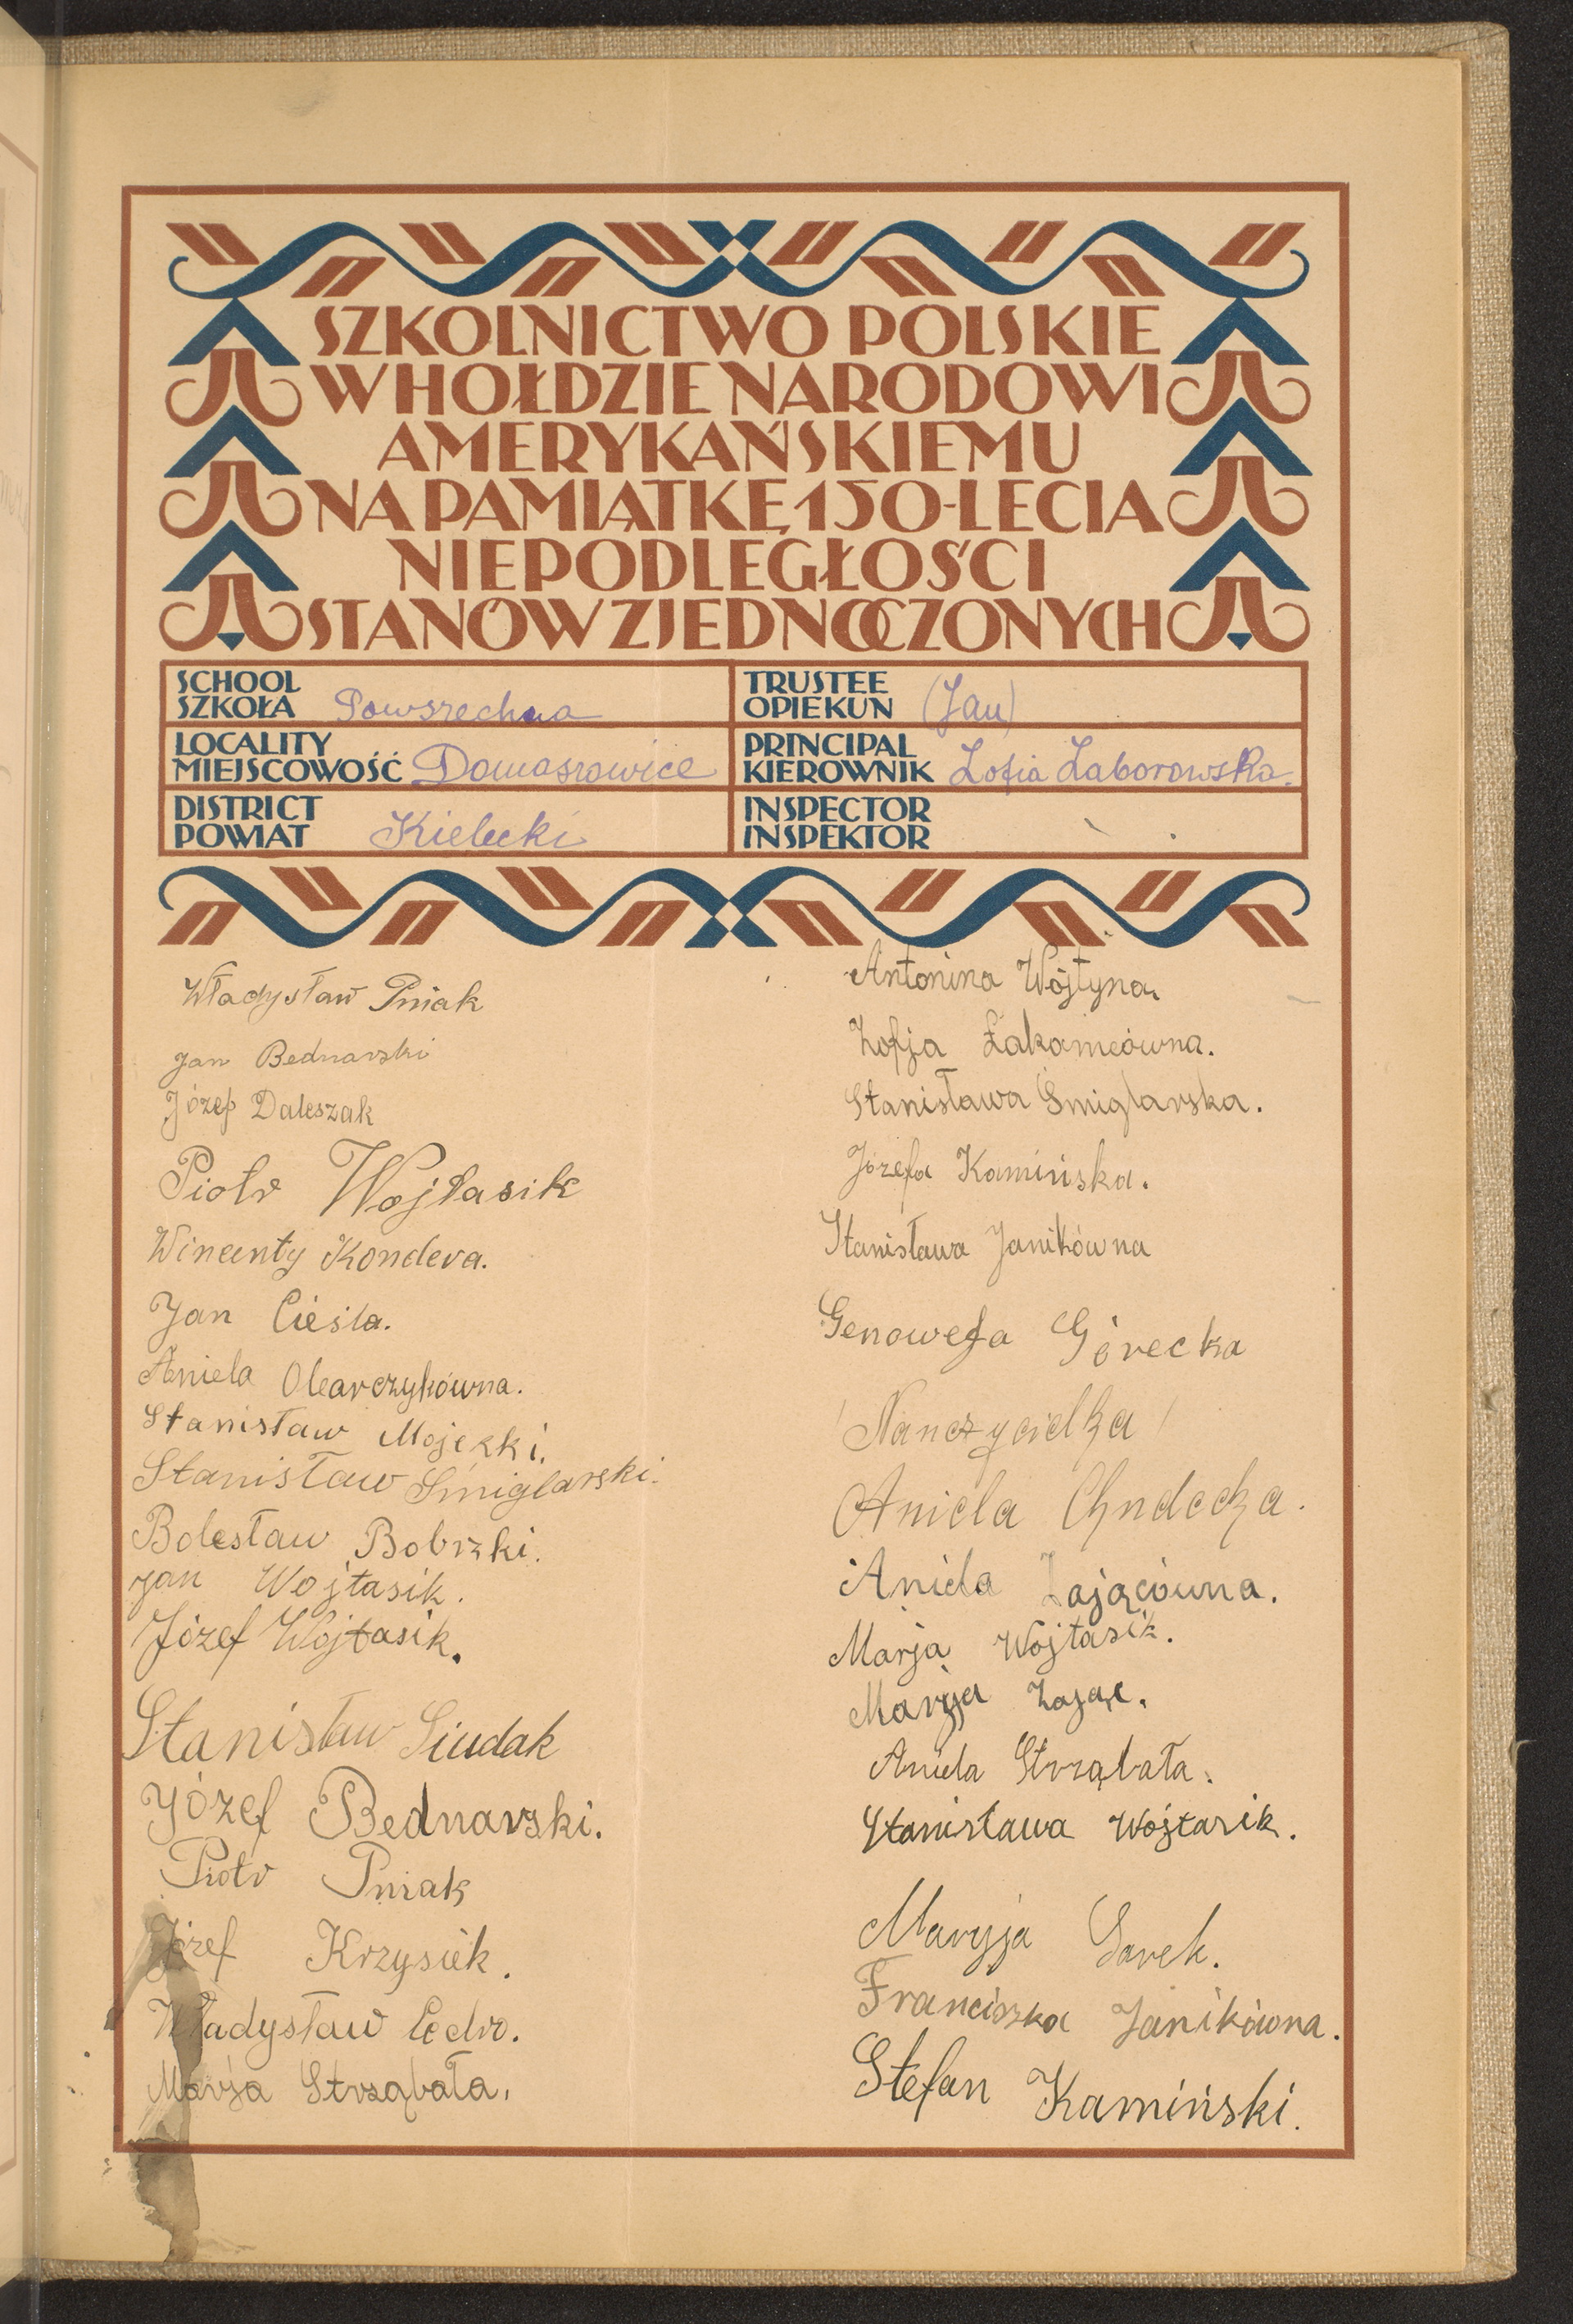 SZKOLNICTWO POLSKIE
W HOŁDZIE NARODOWI
AMERYKAŃSKIEMU
NA PAMIĄTKĘ 150-LECIA
NIEPODLEGŁOŚCI
STANÓW ZJEDNOCZONYCH
SCHOOL
SZKOŁA Powszechna
TRUSTEE
OPIEKUN (Jan)
LOCALITY
MIEJSCOWOŚĆ Domaszowice
PRINCIPAL
KIEROWNIK Zofia Zaborowska.
DISTRICT
POWIAT Kielecki
INSPECTOR
INSPEKTOR
Władysław Pniak
Jan Bednarski
Józef Daleszak
Piotr Wojtasik
Wincenty Kondera.
Jan Cieśla.
Aniela Olearczykówna.
Stanisław Mojecki.
Stanisław Śmiglarski.
Bolesław Bobrzki.
Jan Wojtasik.
Józef Wojtasik.
Stanisław Siudak
Józef Bednarski.
Piotr Pniak
Józef Krzysiek.
Władysław Cedro.
Marja Strząbała.
Antonina Wójtyna.
Zofja Łakomcówna.
Stanisława Śmiglarska.
Józefa Kamińska.
Stanisława Janikówna
Genowefa Górecka
/Nauczycielka/
Aniela Chudecka.
Aniela Zającówna.
Marja Wojtasik.
Maryja Zając.
Aniela Strząbała.
Stanisława Wojtasik.
Maryja Sarek.
Franciszka Janikówna.
Stefan Kamiński.